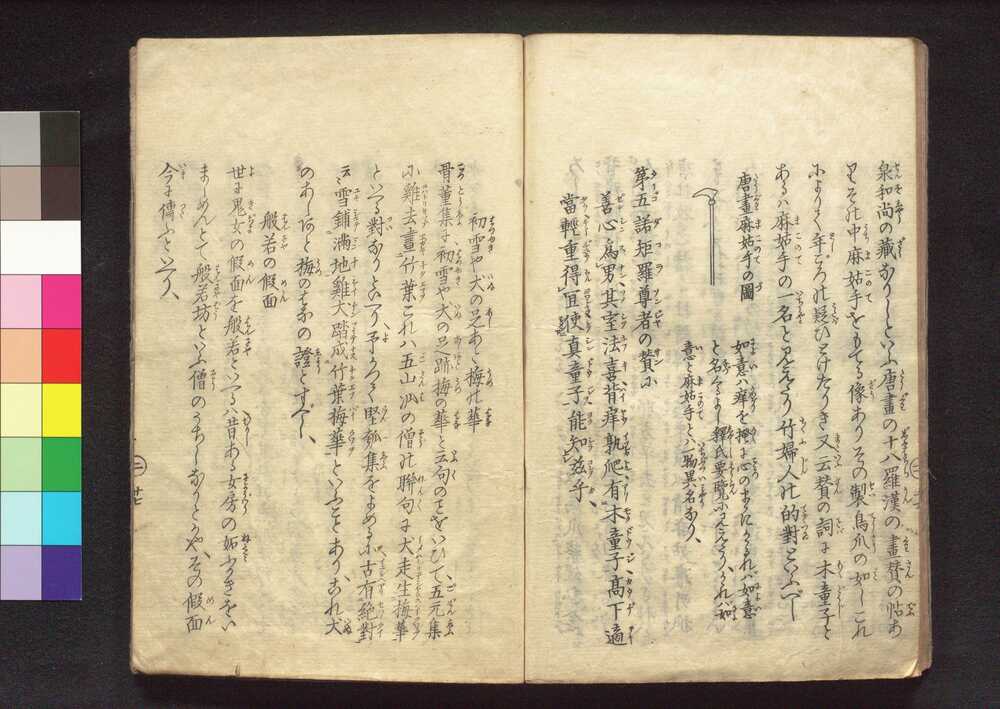 泉和尚の藏なりしといふ唐畫の十八羅漢の畫賛の帖あ
りその中麻姑手をもてる像ありその製鳥爪の如しこれ
によりて年ごろの疑ひとけたりき又云賛の詞に木童子と
あるハ麻姑手の一名と見えたり竹婦人の的對といふべし
唐畫麻姑手の圖
如意ハ痒を掻に心のまゝにかくなれハ如意
と名るよし釋氏要覽に見えたりかゝれハ如
意と麻姑手とハ一物異名なり、
第五諾矩羅尊者の賛に
善心為男其室法喜背痒孰爬有木童子髙下適
當輕重得宜使真童子能知茲乎、
二ノ廿
初雪や犬の足あと梅の華
骨董集に、初雪や犬の足跡梅の華と云句のことをいひて五元集
に雞去畫竹葉これハ五山派の僧の聯句に犬走生梅華
といへる對なりといへり予かつて堅瓠集をよめるに古有絶對
云雪鋪滿地雞犬踏成竹葉梅華といふことあり、これ犬
のあしあとと梅の華の證とすべし、
般若の假面
世に鬼女の假面を般若といへるハ昔ある女房の妬ふかきをい
ましめんとて般若坊といふ僧のうちしなりとかや、その假面
今に傳ふといへり、
二ノ廿